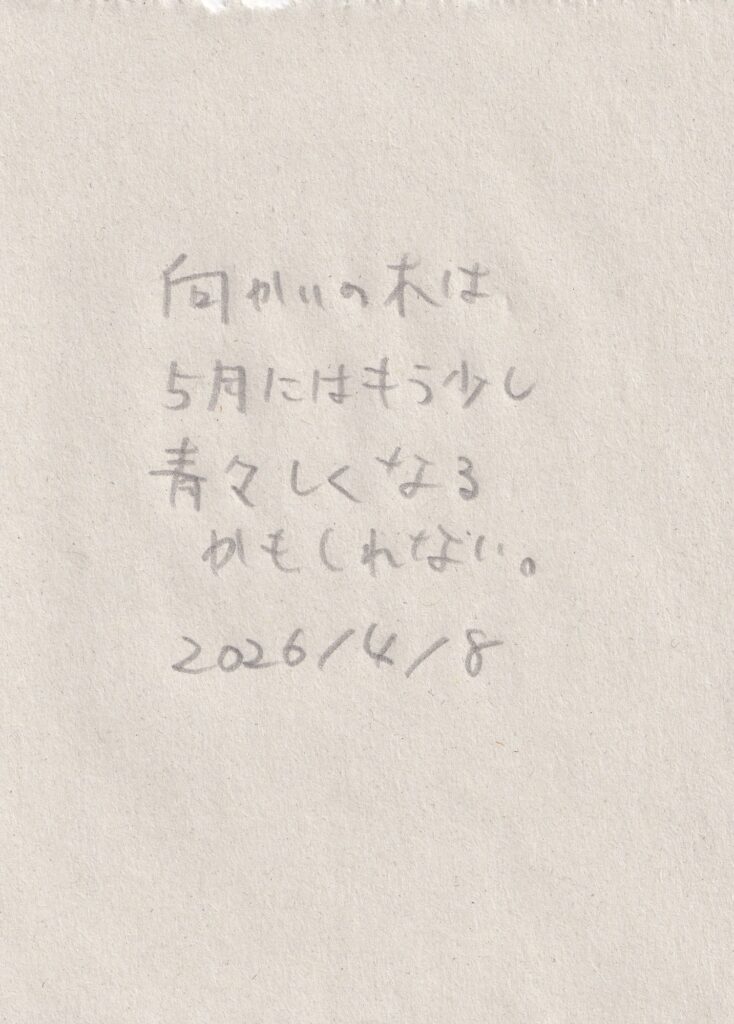 向かいの木は
5月にはもう少し
青々しくなる
かもしれない。
2026/4/8